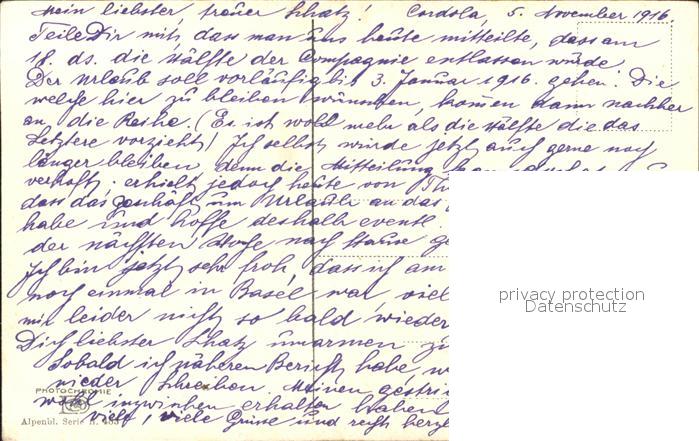 Mein liebster, treuer Schatz! Cordola, 5. November 1916.
Teile Dir mit, dass man uns heute mitteilte, dass am
18. ds. die Hälfte der Compagnie entlassen würde
Der Urlaub soll vorläufig bis 3. Januar 1916. gehen. Die
welche hier zu bleiben wünschen, kommen dann nachher
an die Reihe. (Es ist wohl mehr als die Hälfte die das
Letztere vorzieht) Ich selbst würde jetzt auch gerne noch
länger bleiben, denn die Mitteilung kam
erhielt jedoch heute von Th
dass das Geschäft um Urlaub an das
habe und hoffe deshalb eventl.
der nächsten Woche nach Hause ge
Ich bin jetzt sehr froh, dass ich am
noch einmal in Basel war, viel
mir leider nicht so bald wieder
Dich liebster Schatz umarmen zu
Sobald ich näheren Bericht habe, w
wieder schreiben. Meinen gestri
wohl inzwischen erhalten haben
viele, viele Grüsse und recht herzl
PHOTOCHROMIE
Alpenbl. Serie II.
privacy protection
Datenschutz